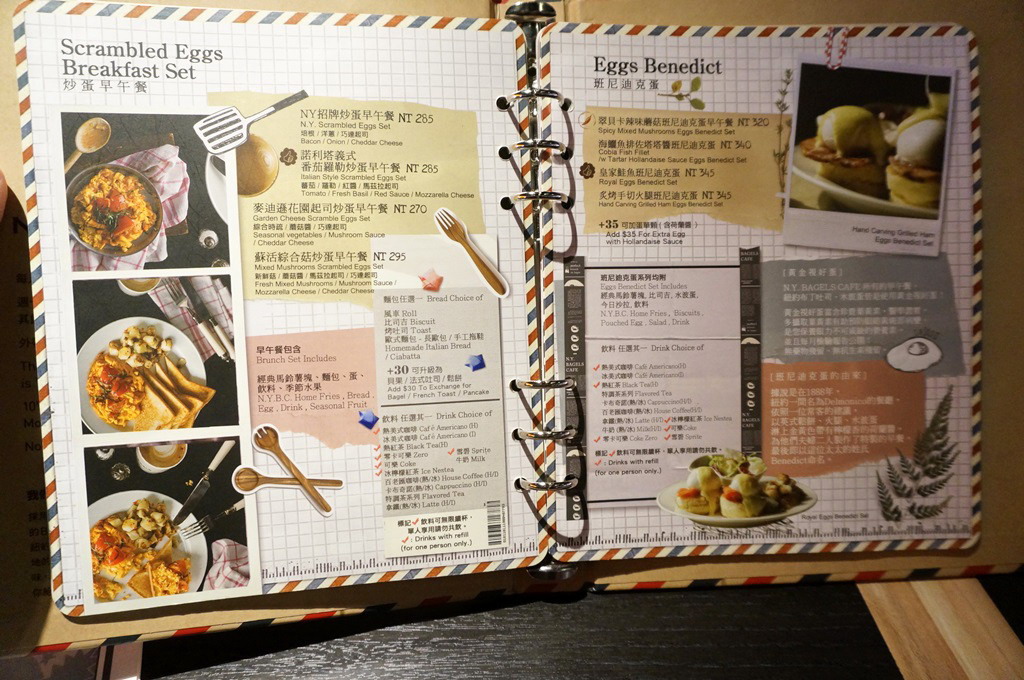 Scrambled Eggs
Breakfast Set
炒蛋早午餐
NY招牌炒蛋早午餐 NT 285
N.Y. Scrambled Eggs Set
培根 / 洋蔥 / 巧達起司
Bacon / Onion / Cheddar Cheese
諾利塔義式
番茄羅勒炒蛋早午餐 NT 285
Italian Style Scrambled Eggs Set
蕃茄 / 羅勒 / 紅醬 / 馬茲拉起司
Tomato / Fresh Basil / Red Sauce / Mozzarella Cheese
麥迪遜花園起司炒蛋早午餐 NT 270
Garden Cheese Scramble Eggs Set
綜合時疏 / 蘑菇醬 / 巧達起司
Seasonal vegetables / Mushroom Sauce
/ Cheddar Cheese
蘇活綜合菇炒蛋早午餐 NT 295
Mixed Mushrooms Scrambled Eggs Set
新鮮菇 / 蘑菇醬 / 馬茲拉起司 / 巧達起司
Fresh Mixed Mushrooms / Mushroom Sauce /
Mozzarella Cheese / Cheddar Cheese
早午餐包含
Brunch Set Includes
經典馬鈴薯塊、麵包、蛋、
飲料、季節水果
N.Y.B.C. Home Fries, Bread,
Egg, Drink, Seasonal Fruit
麵包任選一 Bread Choice of
風車 Roll
比司吉 Biscuit
烤吐司 Toast
歐式麵包 - 長歐包 / 手工拖鞋
Homemade Italian Bread
/ Ciabatta
+30 可升級為
貝果 / 法式吐司 / 鬆餅
Add $30 To Exchange for
Bagel / French Toast / Pancake
飲料任選其一 Drink Choice of
熱美式咖啡 Café Americano (H)
冰美式咖啡 Café Americano (I)
熱紅茶 Black Tea(H)
零卡可樂 Coke Zero 雪碧 Sprite
可樂 Coke 牛奶 Milk
冰檸檬紅茶 Ice Nestea
百老匯咖啡(熱/冰) House Coffee (H/I)
卡布奇諾(熱/冰) Cappuccino (H/I)
特調茶系列 Flavored Tea
拿鐵(熱/冰) Latte (H/I)
標記 ✓ 飲料可無限續杯，
單人享用請勿共飲。
✓ : Drinks with refill
(for one person only.)
Eggs Benedict
班尼迪克蛋
翠貝卡辣味蘑菇班尼迪克蛋早午餐 NT 320
Spicy Mixed Mushrooms Eggs Benedict Set
海鱺魚排佐塔塔醬班尼迪克蛋 NT 340
Cobia Fish Fillet
/w Tartar Hollandaise Sauce Eggs Benedict Set
皇家鮭魚班尼迪克蛋 NT 345
Royal Eggs Benedict Set
炙烤手切火腿班尼迪克蛋 NT 345
Hand Carving Grilled Ham Eggs Benedict Set
+35 可加蛋單顆 (含荷蘭醬)
Add $35 For Extra Egg
with Hollandaise Sauce
Hand Carving Grilled Ham
Eggs Benedict Set
班尼迪克蛋系列均附
Eggs Benedict Set Includes
經典馬鈴薯塊, 比司吉, 水波蛋,
今日沙拉, 飲料
N.Y.B.C. Home Fries, Biscuits,
Pouched Egg, Salad, Drink
飲料 任選其一 Drink Choice of
熱美式咖啡 Café Americano(H)
冰美式咖啡 Café Americano(I)
熱紅茶 Black Tea(H)
特調茶系列 Flavored Tea
卡布奇諾(熱/冰) Cappuccino(H/I)
百老匯咖啡(熱/冰) House Coffee(H/I)
拿鐵(熱/冰) Latte (H/I) 冰檸檬紅茶 Ice Nestea
牛奶 (熱/冰) Milk(H/I) 可樂Coke
零卡可樂 Coke Zero 雪碧 Sprite
標記 ✓ 飲料可無限續杯, 單人享用請勿共飲。
✓ : Drinks with refill
(for one person only.)
N.Y.
BAGELS
CAFE
[黃金視好蛋]
[班尼迪克蛋的由來]
據說是在1888年，
紐約一間名為Delmonico's的餐廳，
Benedict命名。
Royal Eggs Benedict Set